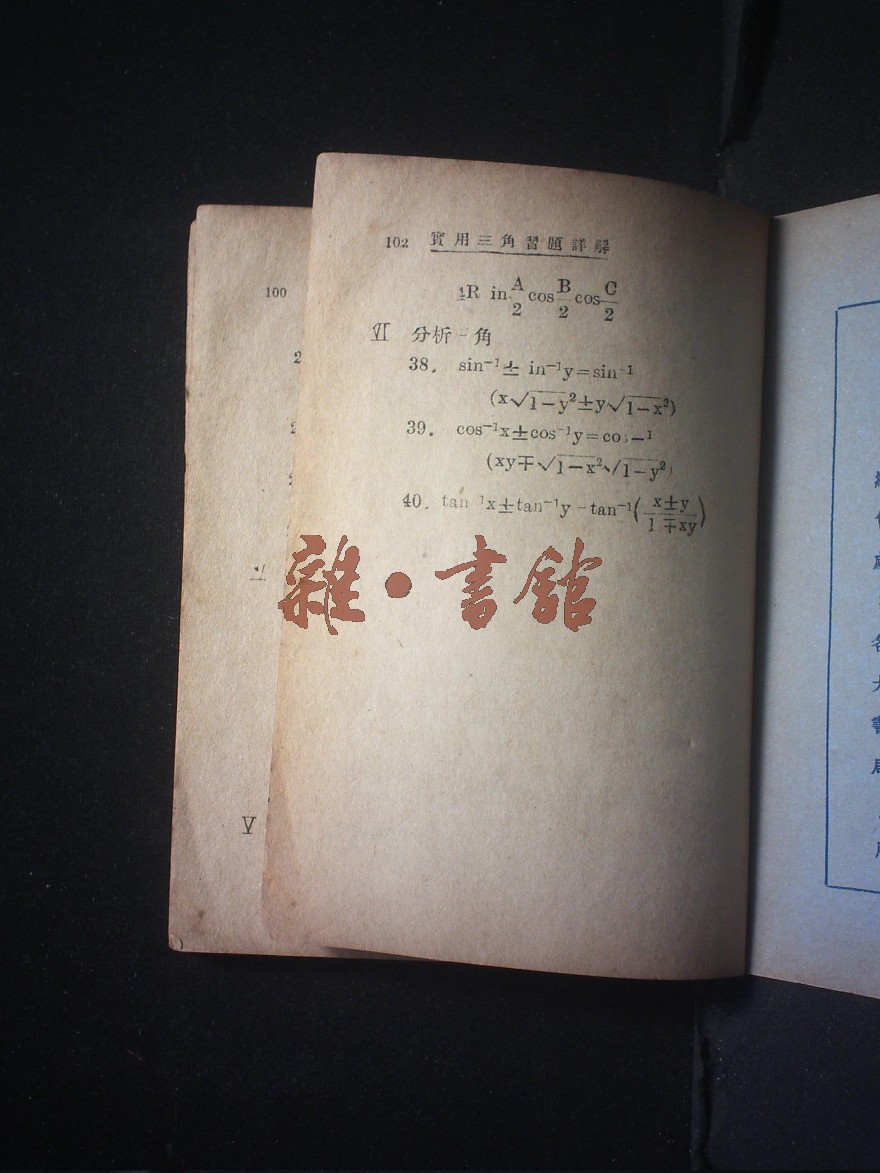 102 實用三角習題詳解
4R in A/2 cos B/2 cos C/2
Ⅵ 分析三角
38. sin⁻¹± in⁻¹y=sin⁻¹
(x√1-y²±y√1-x²)
39. cos⁻¹x±cos⁻¹y=co -1
(xy∓√1-x²√1-y²)
40. tan⁻¹x±tan⁻¹y-tan⁻¹(x±y/1∓xy)
100
2
2
V
雜·書館
各
大
書